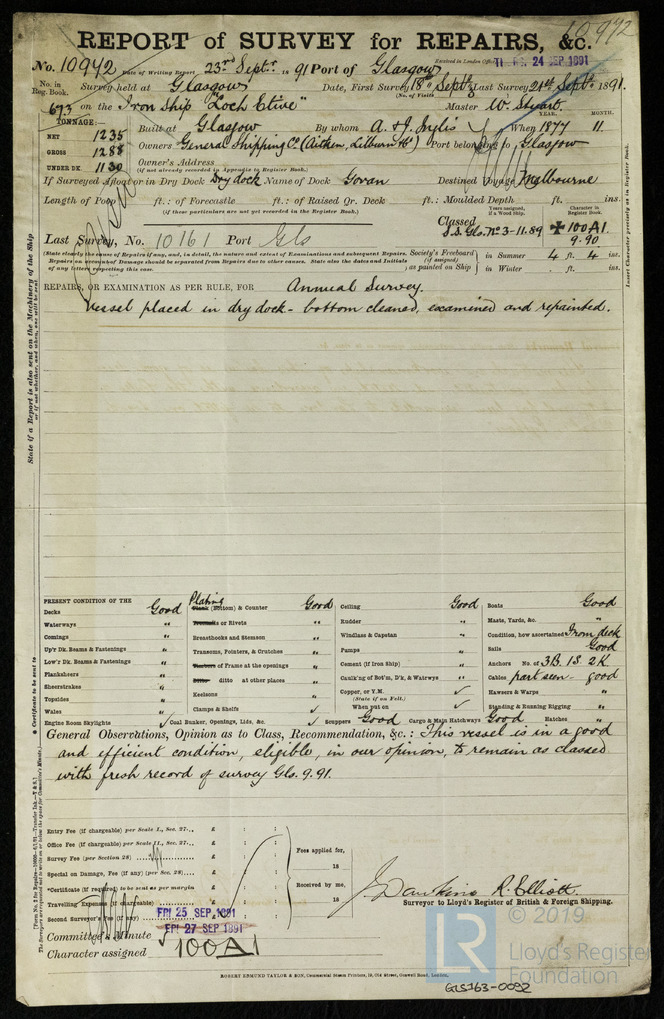 10942
REPORT of SURVEY for REPAIRS, &c.
No. 10942 Date of Writing Report 23rd Septr. 1891 Port of Glasgow Received in London Office 24 SEP 1891
No. in Reg. Book. Survey held at Glasgow Date, First Survey 18th Sept Last Survey 21st Septr 1891.
(No. of Visits
673 on the Iron Ship "Loch Etive" Master W. Stuart
TONNAGE:—
YEAR. MONTH.
NET 1235 Built at Glasgow By whom A. & J. Inglis When 1877 11.
GROSS 1288 Owners General Shipping Co (Aitken, Lilburn & Co) Port belonging to Glasgow
UNDER DK 1130 Owner's Address
(if not already recorded in Appendix to Register Book.)
If Surveyed Afloat or in Dry Dock Dry dock Name of Dock Govan Destined Voyage Melbourne
Length of Poop ft.: of Forecastle ft.: of Raised Qr. Deck ft.: Moulded Depth ft. ins.
(if these particulars are not yet recorded in the Register Book.)
Classed
Years assigned, if a Wood Ship.
Character in Register Book.
Last Survey, No. 10161 Port Gls S.S. Gls. No 3-11.89 100A1
9.90
(State clearly the cause of Repairs if any, and, in detail, the nature and extent of Examinations and subsequent Repairs.
Repairs on account of Damage should be separated from Repairs due to other causes. State also the dates and Initials
of any letters respecting this case.
Society's Freeboard (if assigned) as painted on Ship in Summer 4 ft. 4 ins.
in Winter . ft. ins.
REPAIRS, OR EXAMINATION AS PER RULE, FOR Annual Survey.
Vessel placed in dry dock - bottom cleaned, examined and repainted.
State if a Report is also sent on the Machinery of the Ship
Insert Character precisely as in Register Book.
PRESENT CONDITION OF THE
Decks Good
Waterways "
Comings "
Up'r Dk. Beams & Fastenings "
Low'r Dk. Beams & Fastenings "
Planksheers "
Sheerstrakes "
Topsides "
Wales "
Engine Room Skylights ✓
Plating
Plank (Bottom) & Counter Good
Treenails or Rivets "
Breasthooks and Stemson "
Transoms, Pointers, & Crutches "
Timbers of Frame at the openings "
Ditto ditto at other places "
Keelsons "
Clamps & Shelfs ✓
Coal Bunker, Openings, Lids, &c. ✓
Ceiling Good
Rudder "
Windlass & Capstan "
Pumps "
Cement (if from Ship) "
Caulk'g of Bot'm, D'k, & Wat'rwys "
Copper, or Y.M. ✓
(State if on Felt.)
When put on ✓
Scuppers Good Cargo & Main Hatchways Good Hatches "
Boats Good
Masts, Yards, &c. "
Condition, how ascertained From deck
Sails Good
Anchors No. of 3B. 1S. 2K
Cables part seen - good
Hawsers & Warps "
Standing & Running Rigging "
General Observations, Opinion as to Class, Recommendation, &c.: This vessel is in a good
and efficient condition, eligible, in our opinion, to remain as classed
with fresh record of survey Gls. 9.91.
Entry Fee (if chargeable) per Scale I., Sec. 27... £ : :
Office Fee (if chargeable) per Scale II., Sec. 27... £ : :
Survey Fee (per Section 28) £ : :
Special on Damage, Fee (if any) (per Sec. 28) £ : :
*Certificate (if required) to be sent as per margin
Travelling Expenses (if chargeable) £ : :
Second Surveyor's Fee (if any) £ : :
Fees applied for,
18
Received by me,
18
J. Dawkins R. Elliott.
Surveyor to Lloyd's Register of British & Foreign Shipping.
FRI 25 SEP 1891
FRI 27 SEP 1891
Committee's Minute
Character assigned 100A1
ROBERT EDMUND TAYLOR & SON, Commercial Steam Printers, 19, Old Street, Goswell Road, London.
LR
© 2019
Lloyd's Register
Foundation
GLS163-0092